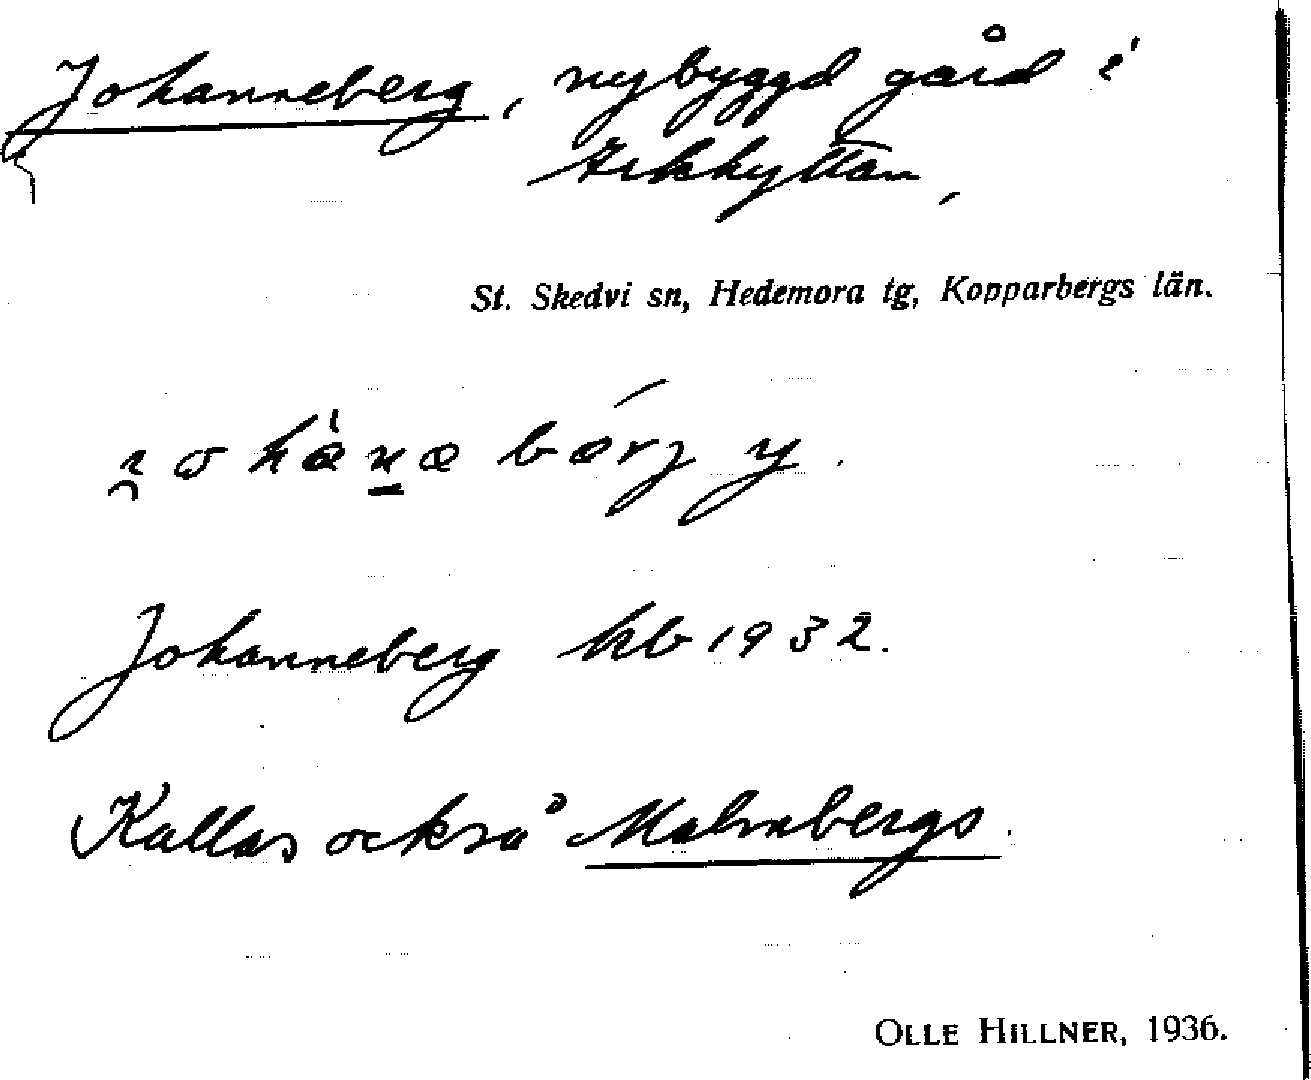 Johanneberg, nybyggd gård i
Erkhyttan,
St. Skedvi sn, Hedemora tg, Kopparbergs län.
Johanneberg kb 1932.
Kallas också Malmbergs.
OLLE HILLNER, 1936.